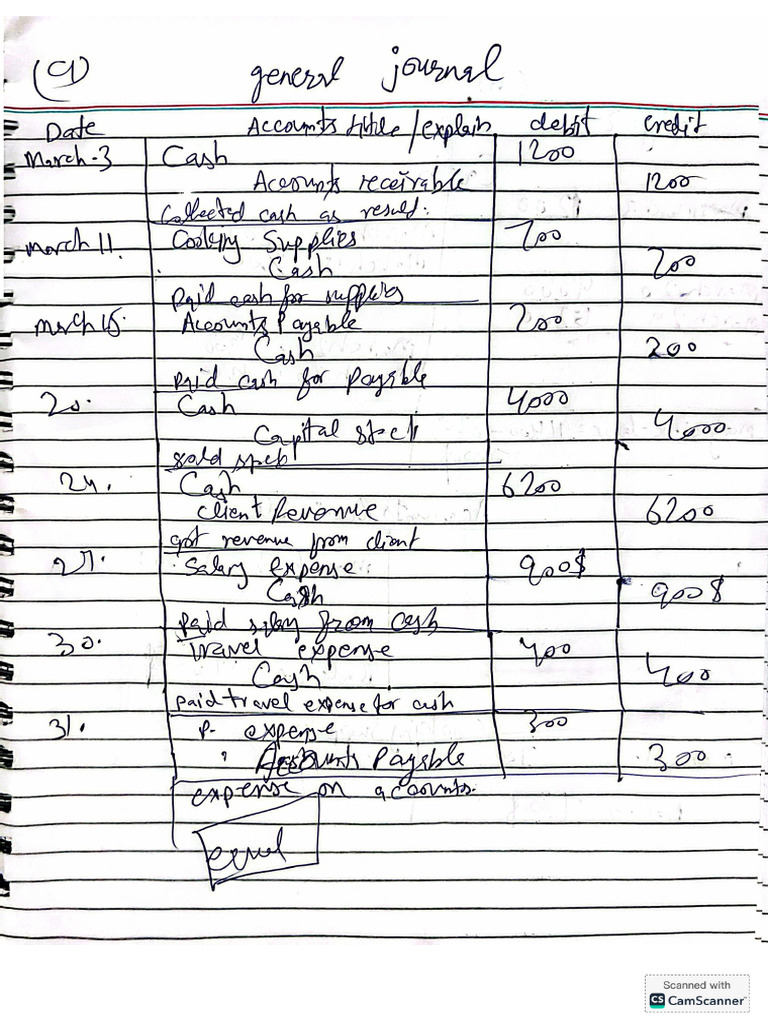 (9) general journal
Date Accounts title/explain debit credit
March-3 Cash 1200
Accounts receivable 1200
Collected cash as result.
March 11. Cooking Supplies 700
Cash 700
Paid cash for supplies
March 15. Accounts Payable 200
Cash 200
Paid cash for payable
20. Cash 4000
Capital stock 4000.
sold
24. Cash 6200
Client Revenue 6200
got revenue from client
27. Salary expense 900$
Cash 900$
Paid salary from cash
30. Travel expense 400
Cash 400
paid travel expense for cash
31. P- expense 300
Accounts Payable 300.
expense on accounts.
equel
Scanned with
CS CamScanner